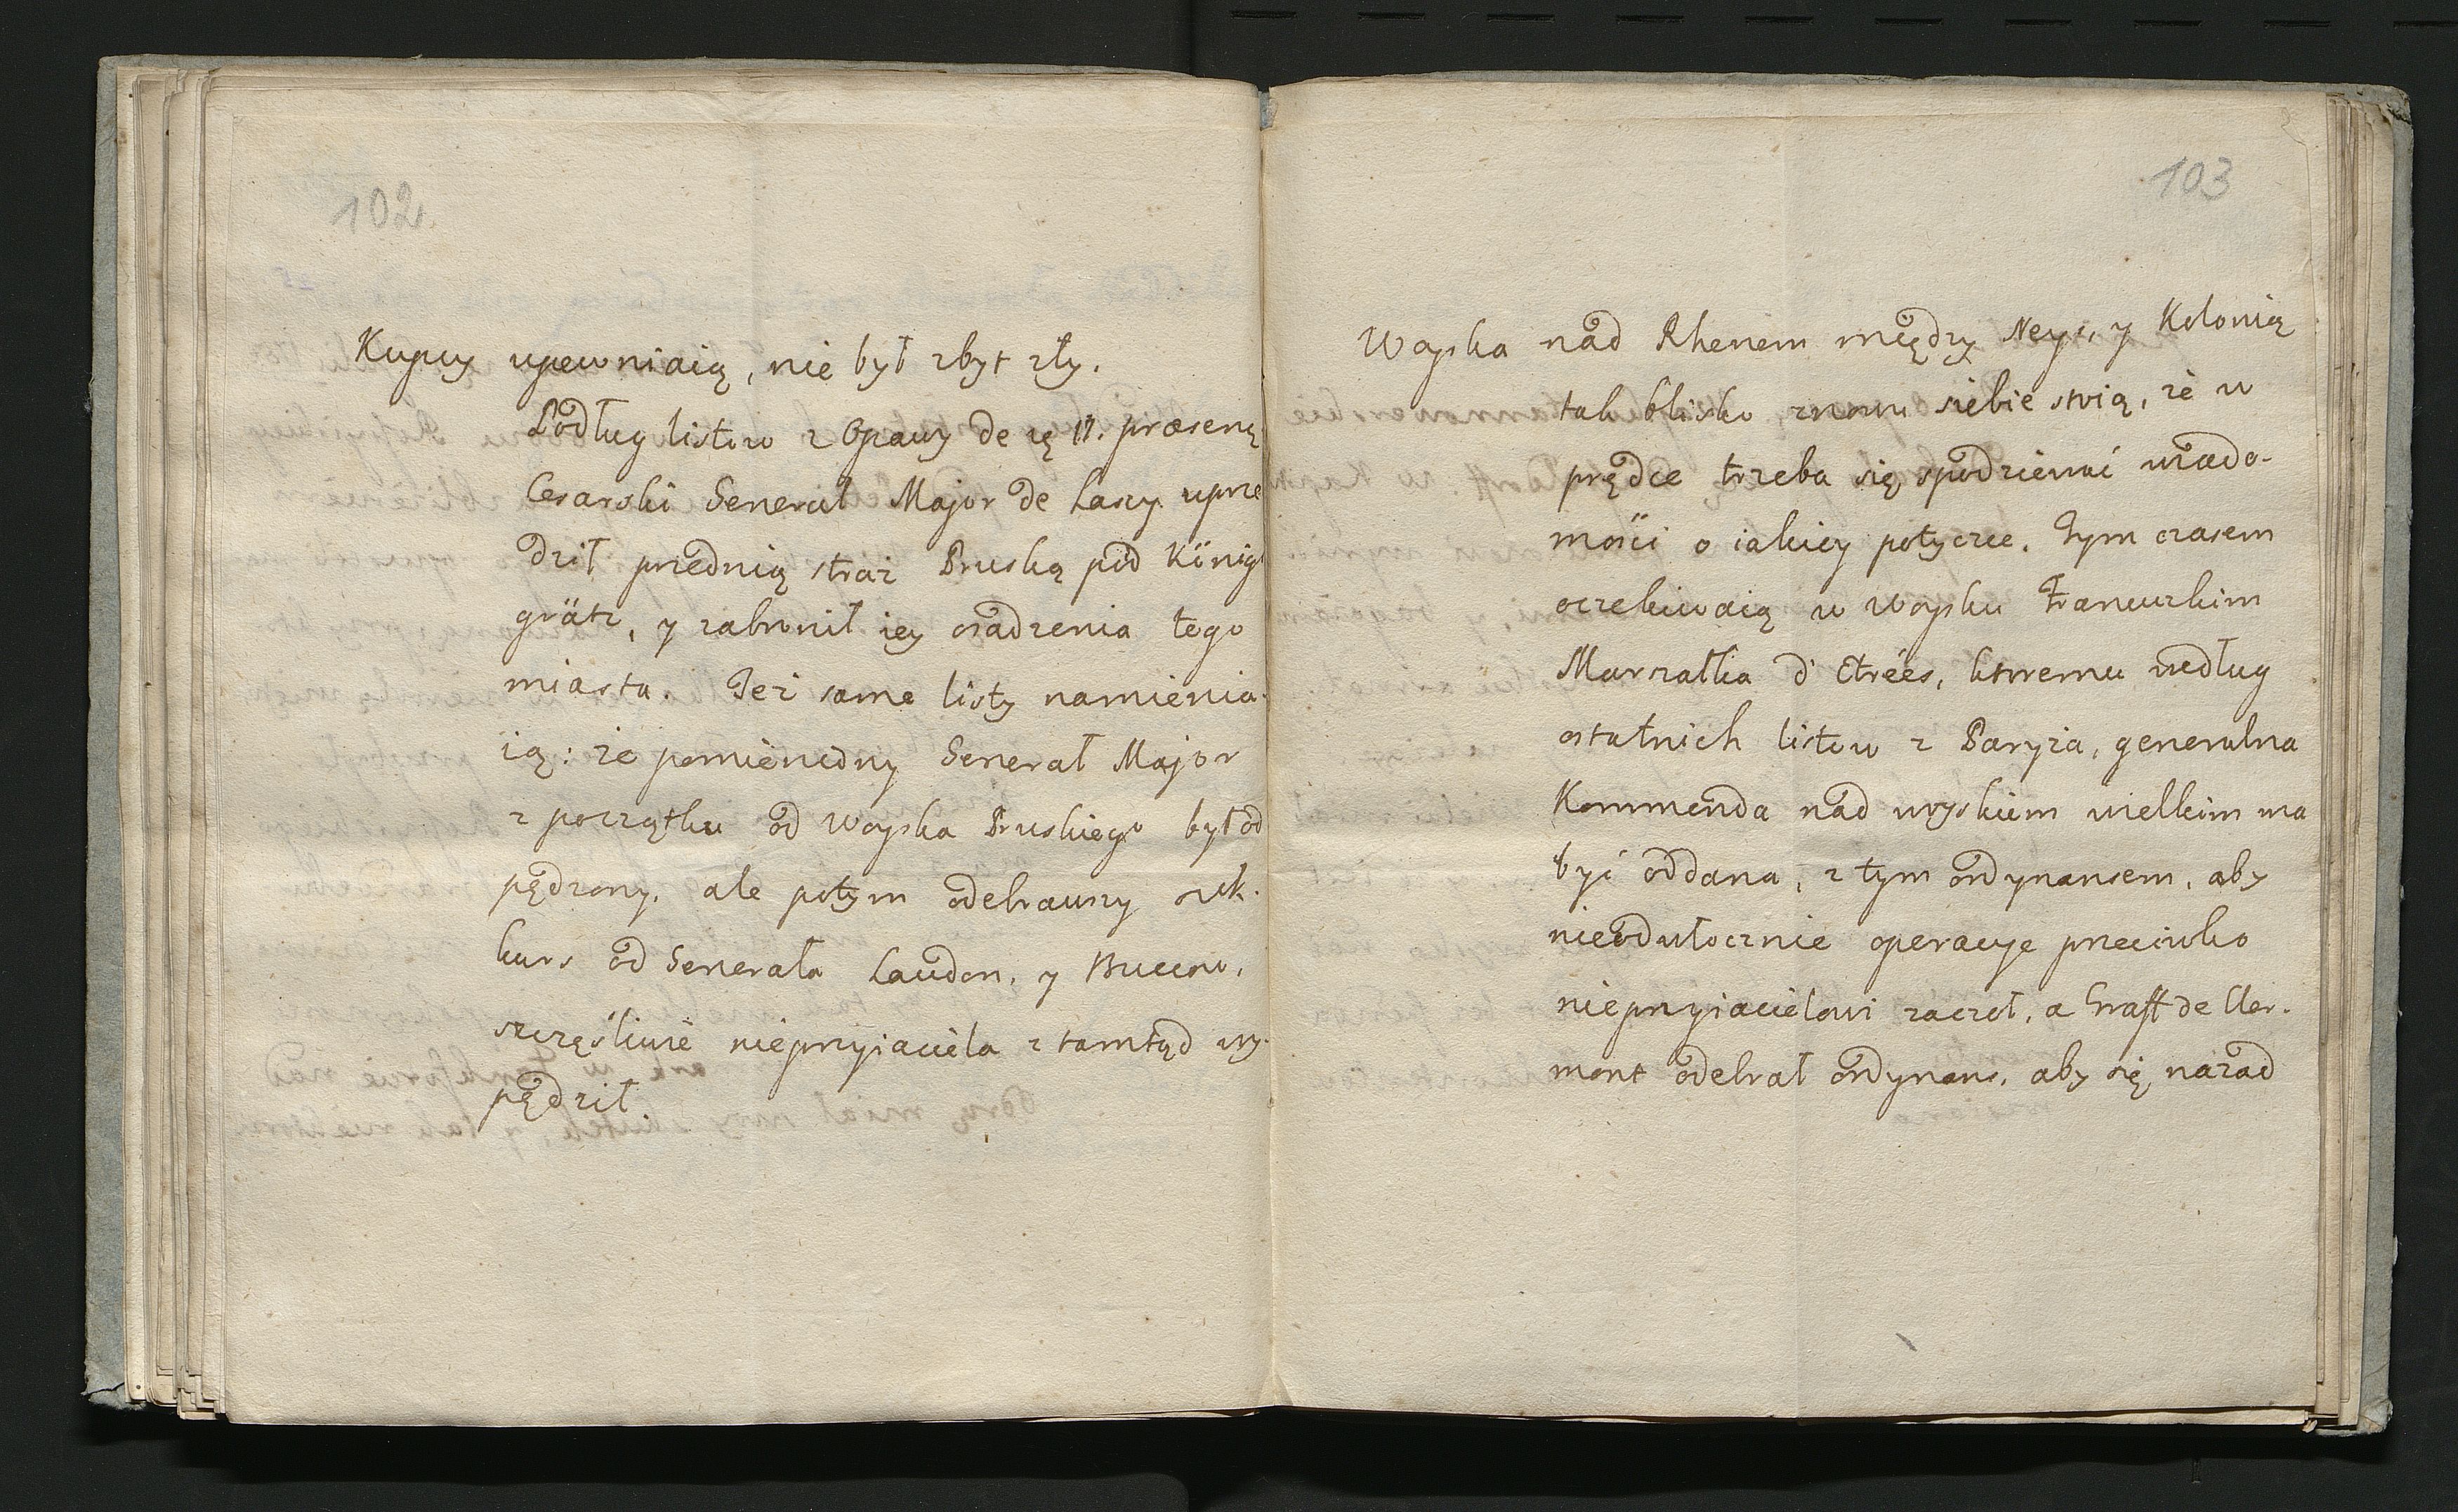 102
Kupcy upewniaią, nie był zbyt zły.
Podług listow z Opawy de 17. præsens
Cesarski Generał Major de Lascy uprze
dził przednią straż Pruską pod König
grätz, y zabronił iey osadzenia tego
miasta. Też same listy namienia-
ią: że pomieniony Generał Major
z początku od Woyska Pruskiego był od
pędzony, ale potym odebrawszy suk-
kurs od Generała Laudon, y Buccow,
szczęśliwie nieprzyiaciela z tamtąd wy-
pędził.
103
Woyska nad Rhenem między Neys, y Kolonią
tak blisko znowu siebie stoią, że w
prędce trzeba się spodziewać wiado-
mości o iakiey potyczce. Tym czasem
oczekiwaią w Woysku Francuzkim
Marszałka d'Etrées, ktoremu według
ostatnich listow z Paryża, generalna
Kommenda nad woyskiem wielkim ma
być oddana, z tym ordynansem, aby
nieodwłocznie operacye przeciwko
nieprzyiacielowi zaczoł, a Graff de Cler-
mont odebrał ordynans, aby się nazad